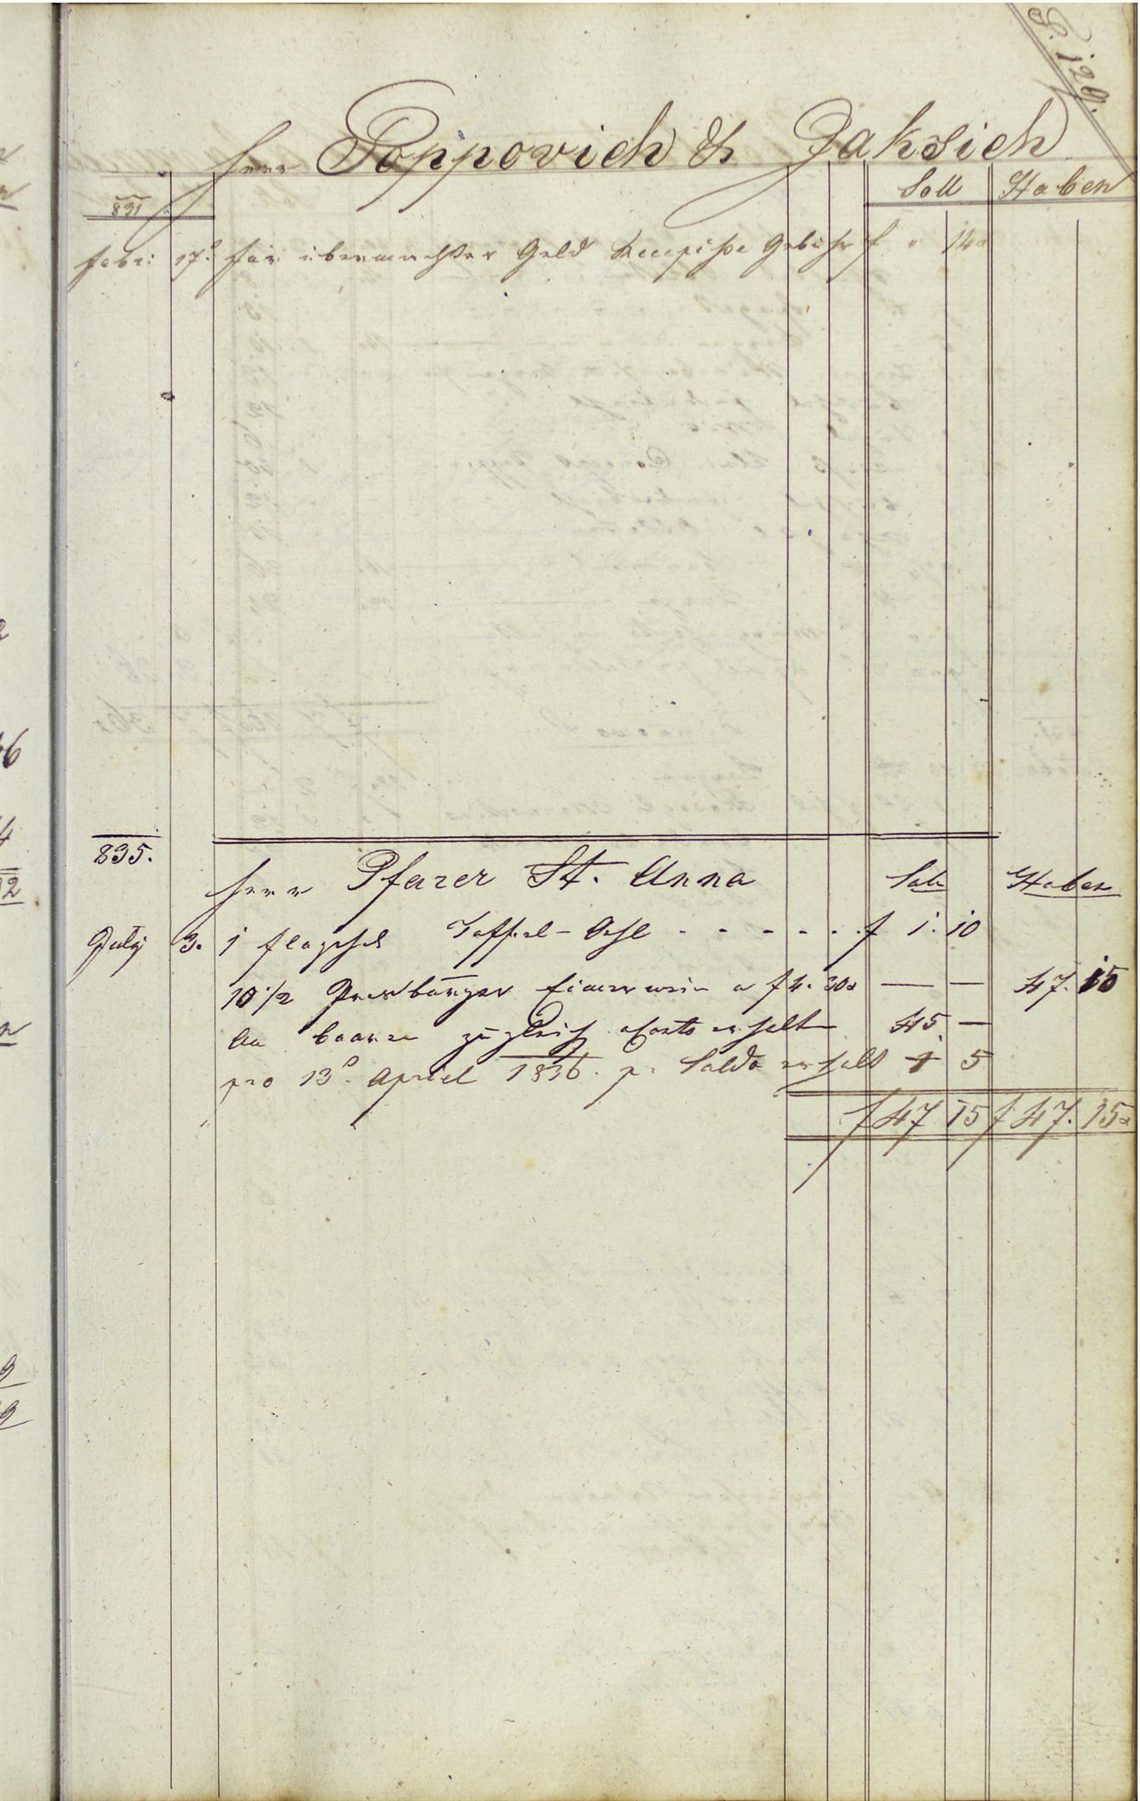 P. 129.
Herr Poppovich & Jaksich
831 Soll Haben
Febr: 17. für übermachter Geld Recepisse Gebühr f " 14x
835.
Herr Pfarer St. Anna Soll Haben
July 3. 1 flasche Taffel-Oehl - - - - - - f 1. 10
10 1/2 Presburger Eimer wein a f 4. 30x — — 47. 15
An baaren zugleich aConto erhalt 45 —
pro 13. Aprill 1836. pr Saldo erhalt 1 5
f 47 15 f 47. 15x